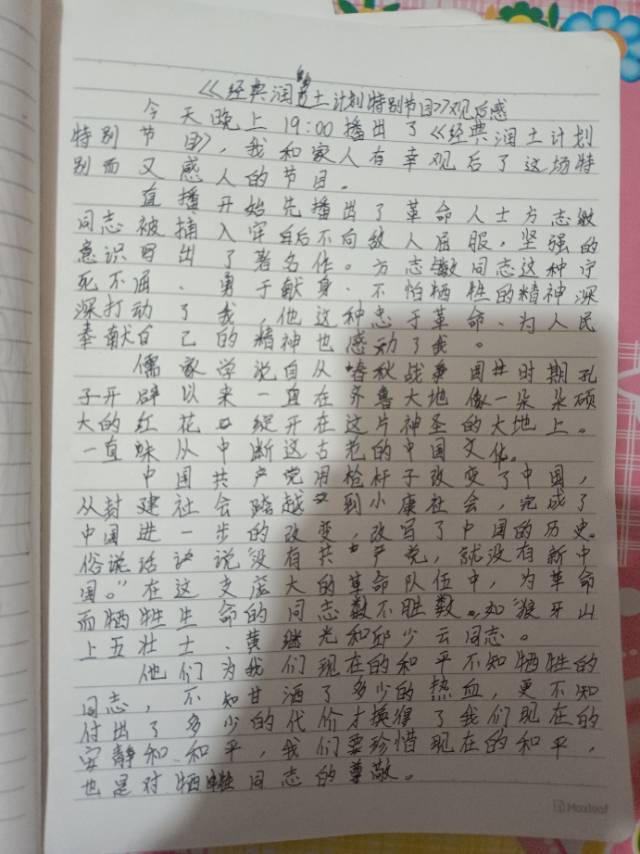 《经典润乡土计划特别节目》观后感
今天晚上19:00播出了《经典润土计划
特别节目》,我和家人有幸观后了这场特
别而又感人的节目。
直播开始先播出了革命人士方志敏
同志被捕入牢狱后不向敌人屈服,坚强的
意识写出了著名作。方志敏同志这种宁
死不屈、勇于献身、不怕牺牲的精神深
深打动了我,他这种忠于革命、为人民
奉献自己的精神也感动了我。
儒家学说自从春秋战国时期孔
子开辟以来一直在齐鲁大地像一朵朵硕
大的红花绽开在这片神圣的大地上。
一直从中断这古老的中国文化。
中国共产党用枪杆子改变了中国,
从封建社会跨越到小康社会,完成了
中国进一步的改变,改写了中国的历史。
俗说话说"没有共产党,就没有新中
国。"在这支庞大的革命队伍中,为革命
而牺牲生命的同志数不胜数。如"狼牙山
上五壮士、黄继光和邱少云同志。
他们为我们现在的和平不知牺牲的
同志,不知甘洒了多少的热血,更不知
付出了多少的代价才换得了我们现在的
安静和和平,我们要珍惜现在的和平,
也是对牺牲同志的尊敬。
Maxleaf